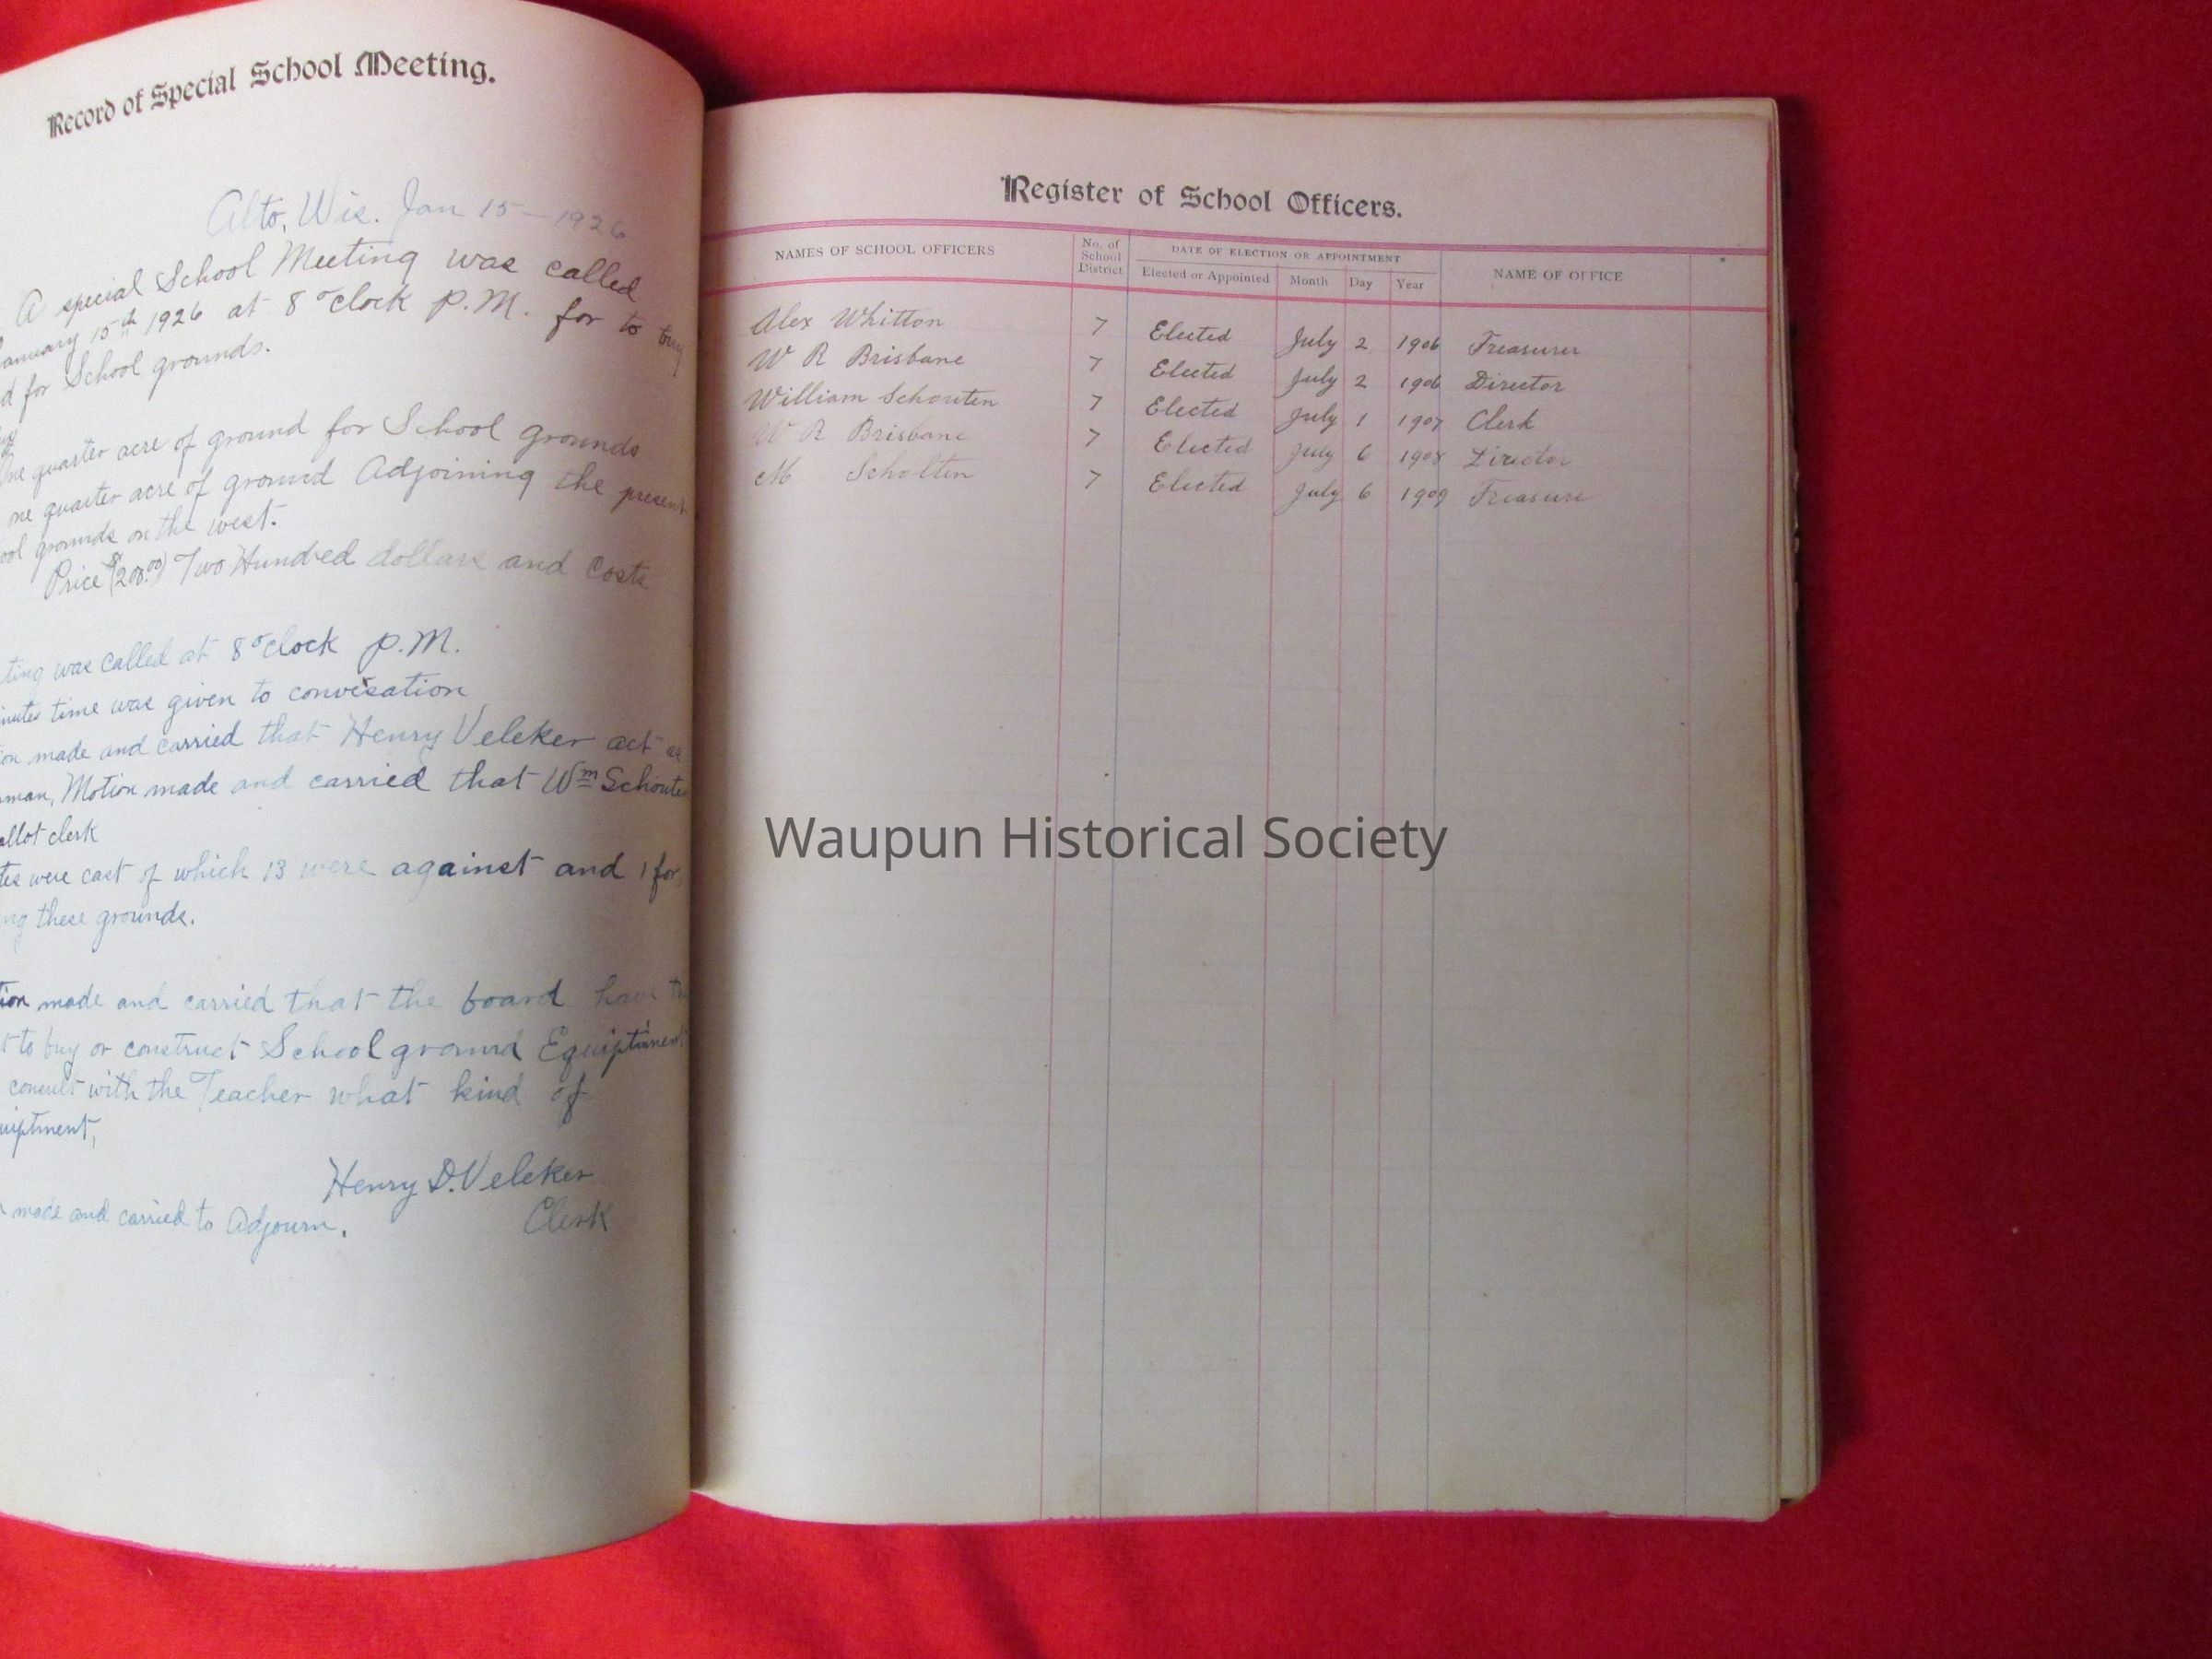 Record of Special School Meeting.
Alto, Wis. Jan 15 - 1926
A special School Meeting was called
January 15th 1926 at 8 oclock P.M. for to buy
d for School grounds.
One quarter acre of ground for School grounds
one quarter acre of ground Adjoining the present
ool grounds on the west.
Price ($200.00) Two Hundred dollars and Costs
ting was called at 8 oclock P.M.
inutes time was given to convisation
ion made and carried that Henry Veleker act as
rman, Motion made and carried that Wm Schouten
allot clerk
tes were cast of which 13 were against and 1 for
ng these grounds.
tion made and carried that the board have the
t to buy or construct School ground Equiptment
consult with the Teacher what kind of
uiptment,
Henry D. Veleker
made and carried to Adjourn. Clerk
Register of School Officers.
NAMES OF SCHOOL OFFICERS No. of School District DATE OF ELECTION OR APPOINTMENT NAME OF OFFICE
Elected or Appointed Month Day Year
Alex Whitton 7 Elected July 2 1906 Treasurer
W R Brisbane 7 Elected July 2 1906 Director
William Schouten 7 Elected July 1 1907 Clerk
W R Brisbane 7 Elected July 6 1908 Director
M Scholten 7 Elected July 6 1909 Treasure
Waupun Historical Society